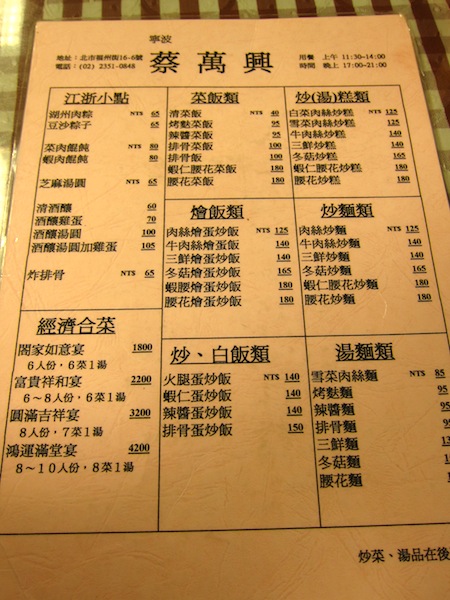 寧波
蔡萬興
地址：北市福州街16-6號
電話：(02) 2351-0848
用餐 上午 11:30-14:00
時間 晚上 17:00-21:00
江浙小點
湖州肉粽 NT$ 65
豆沙粽子 65
菜肉餛飩 NT$ 80
蝦肉餛飩 80
芝麻湯圓 NT$ 65
清酒釀 60
酒釀雞蛋 70
酒釀湯圓 100
酒釀湯圓加雞蛋 105
炸排骨 NT$ 65
經濟合菜
閤家如意宴 1800
6人份，6菜1湯
富貴祥和宴 2200
6～8人份，6菜1湯
圓滿吉祥宴 3200
8人份，7菜1湯
鴻運滿堂宴 4200
8～10人份，8菜1湯
菜飯類
清菜飯 NT$ 40
烤麩菜飯 90
辣醬菜飯 90
排骨菜飯 100
排骨飯 100
蝦仁腰花菜飯 180
腰花菜飯 180
燴飯類
肉絲燴蛋炒飯 NT$ 125
牛肉絲燴蛋炒飯 140
三鮮燴蛋炒飯 140
冬菇燴蛋炒飯 165
蝦腰燴蛋炒飯 180
腰花燴蛋炒飯 180
炒、白飯類
火腿蛋炒飯 NT$ 140
蝦仁蛋炒飯 140
辣醬蛋炒飯 140
排骨蛋炒飯 150
炒(湯)糕類
白菜肉絲炒糕 NT$ 125
雪菜肉絲炒糕 125
牛肉絲炒糕 140
三鮮炒糕 140
冬菇炒糕 165
蝦仁腰花炒糕 180
腰花炒糕 180
炒麵類
肉絲炒麵 NT$ 125
牛肉絲炒麵 140
三鮮炒麵 140
冬菇炒麵 165
蝦仁腰花炒麵 180
腰花炒麵 180
湯麵類
雪菜肉絲麵 NT$ 85
烤麩麵 95
辣醬麵 95
排骨麵 95
三鮮麵
冬菇麵
腰花麵
炒菜、湯品在後